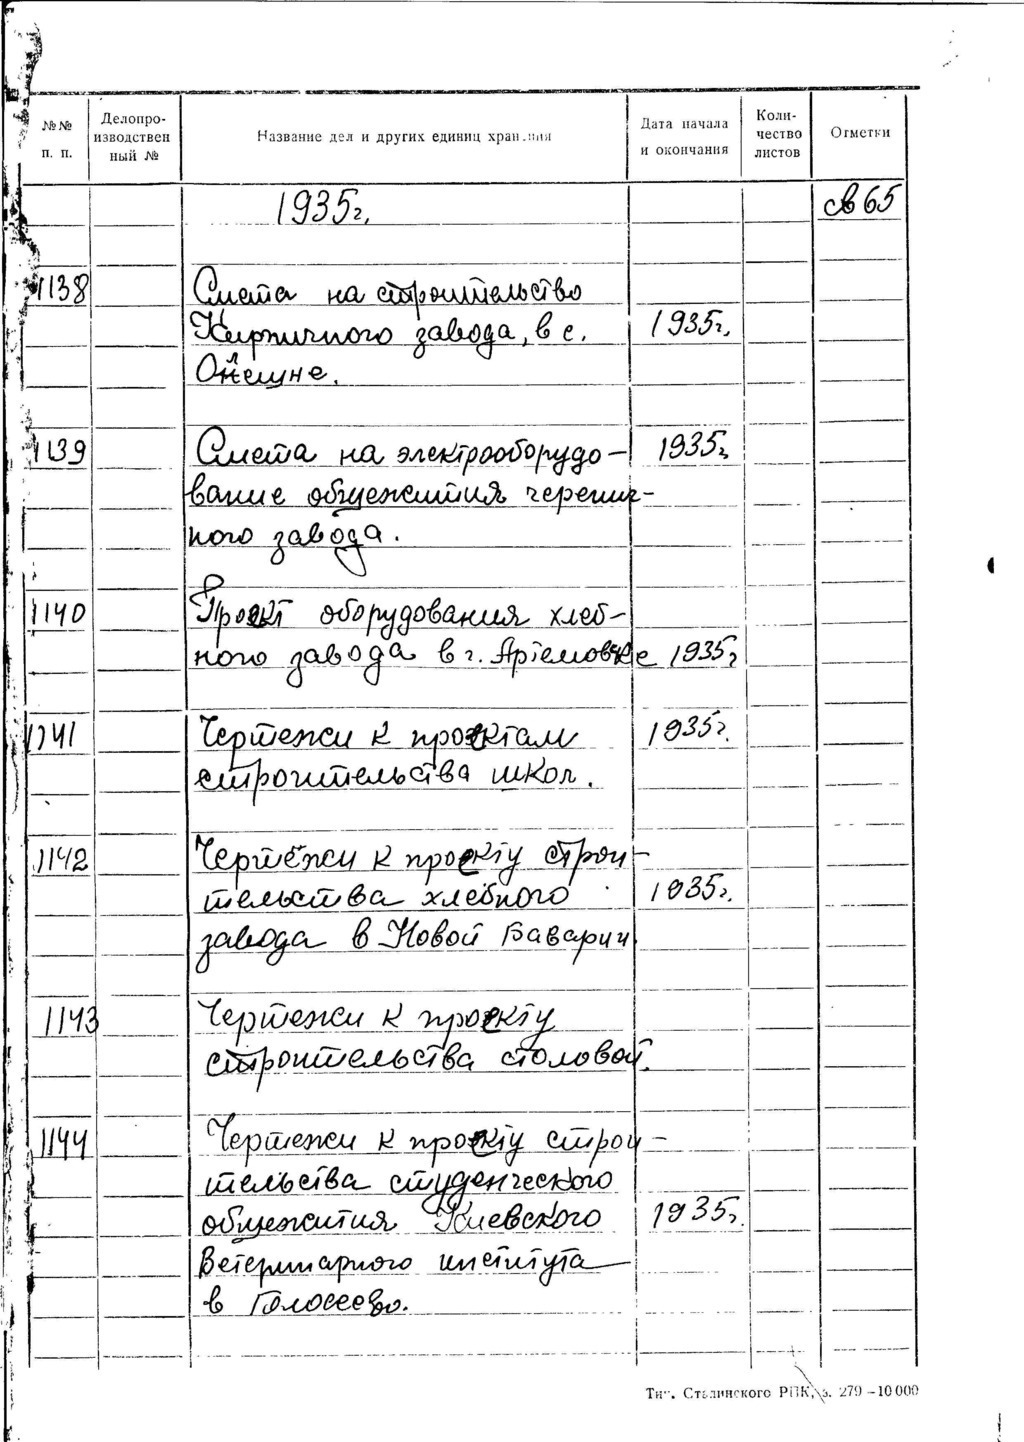 №№ п. п.
Делопро-
изводствен
ный №
Название дел и других единиц хранения
Дата начала
и окончания
Коли-
чество
листов
Отметки
1935г.
св 65
1138 Смета на строительство
Кирпичного завода, в с. 1935г.
Опешне.
1139 Смета на электрооборудо- 1935г.
вание общежития черепич-
ного завода.
1140 Проект оборудования хлеб-
ного завода в г. Артемовске 1935г
1141 Чертежи к проектам 1935г.
строительства школ.
1142 Чертежи к проекту строи-
тельства хлебного 1935г.
завода в Новой Баварии
1143 Чертежи к проекту
строительства столовой.
1144 Чертежи к проекту строи-
тельства студенческого
общежития Киевского 1935г.
Ветеринарного института
в Голосеево.
Тип. Сталинского РПК, з. 279 – 10 000